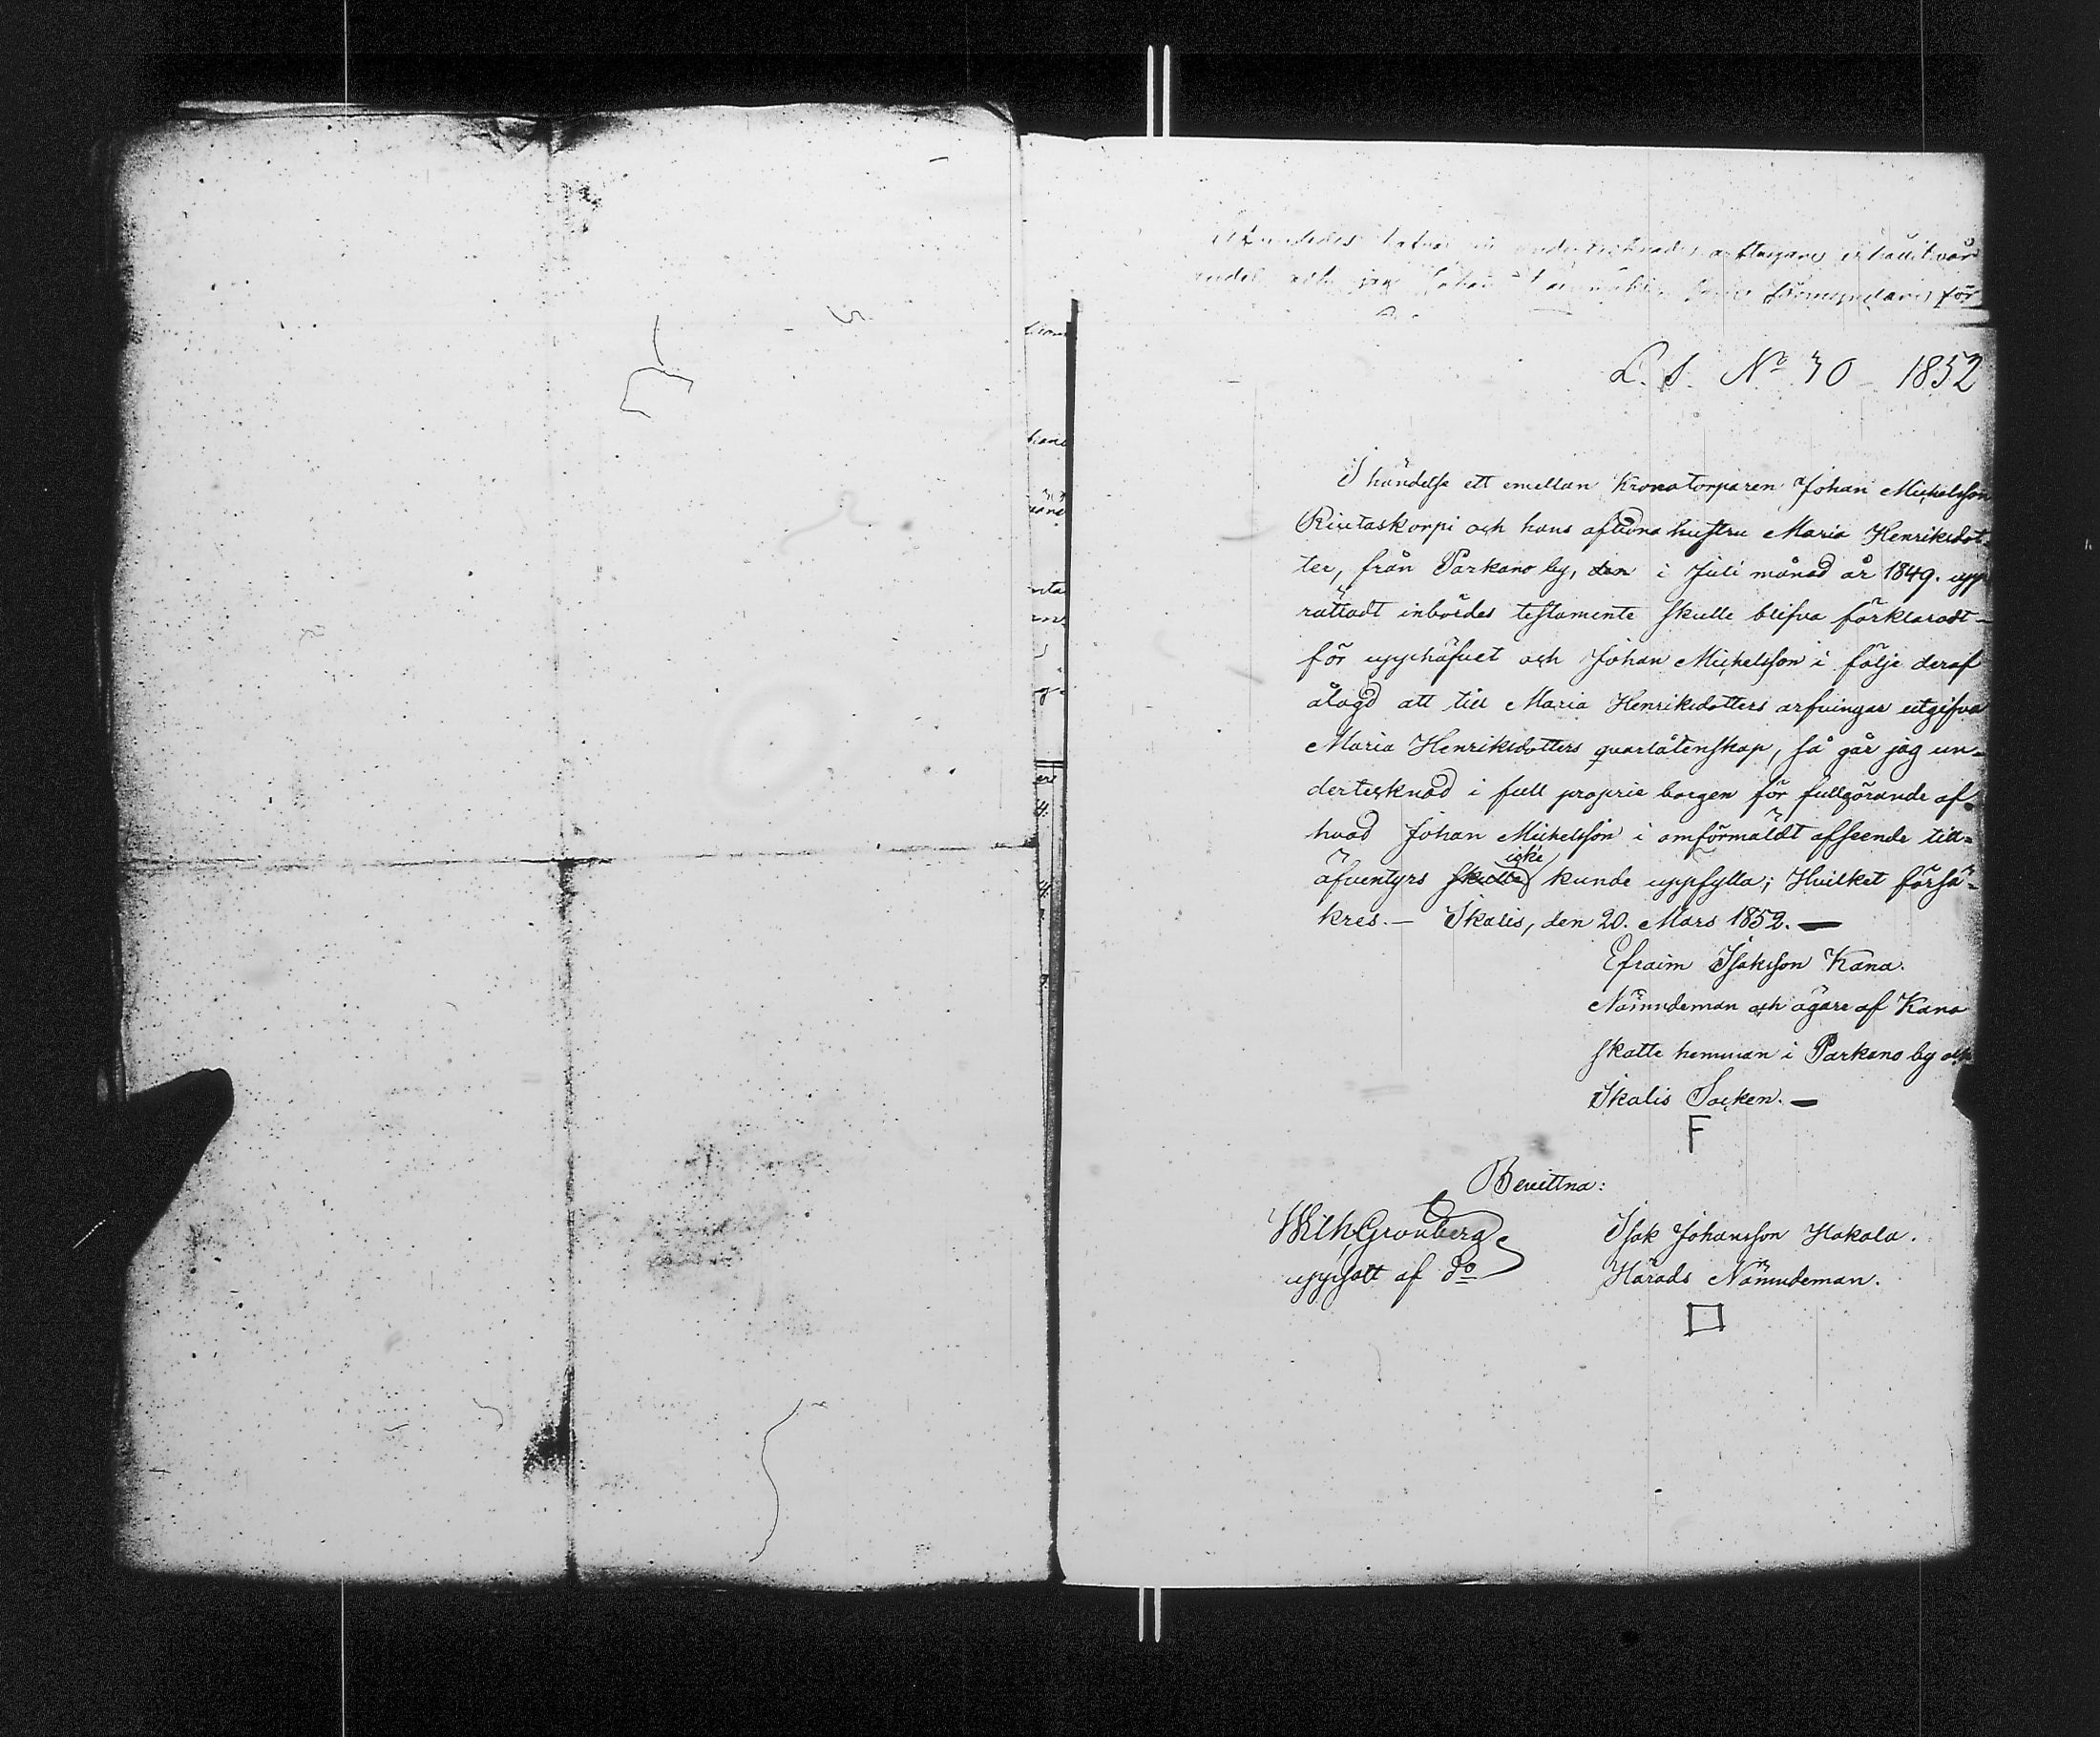 undertecknade arftagare erhållit vår
andel och jag Johan förmyndare för
L. S. No 30 1852
I händelse ett emellan Kronotorparen Johan Michelsson
Riutaskorpi och hans aflidna hustru Maria Henriksdot-
ter, från Parkano by, den i Juli månad år 1849. upp
rättadt inbördes testamente skulle blifva förklaradt
för upphäfvet och Johan Michelsson i följe deraf
ålagd att till Maria Henriksdotters arfvingar utgifva
Maria Henriksdotters qvarlåtenskap, så går jag un-
dertecknad i full proprie borgen för fullgörande af
hvad Johan Michelsson i omförmäldt afseende till-
äfventyrs skulle icke kunde uppfylla; Hvilket försä-
kres. — Ikalis, den 20. Mars 1852. —
Efraim Isaksson Kana.
Nämndeman och ägare af Kana
skatte hemman i Parkano by och
Ikalis Socken. —
F
Bevittna:
Wilh Gronberg
uppsatt af do
Isak Johansson Hakala.
Härads Nämndeman.